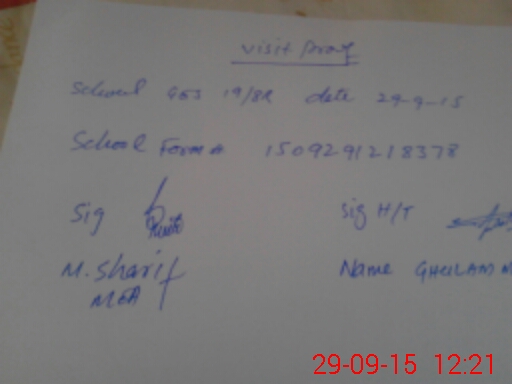 Visit Proof
School GES 19/8R date 29-9-15
School Form A 1509291218378
Sig Sig H/T
M. Sharif Name GHULAM M
MEA
29-09-15 12:21